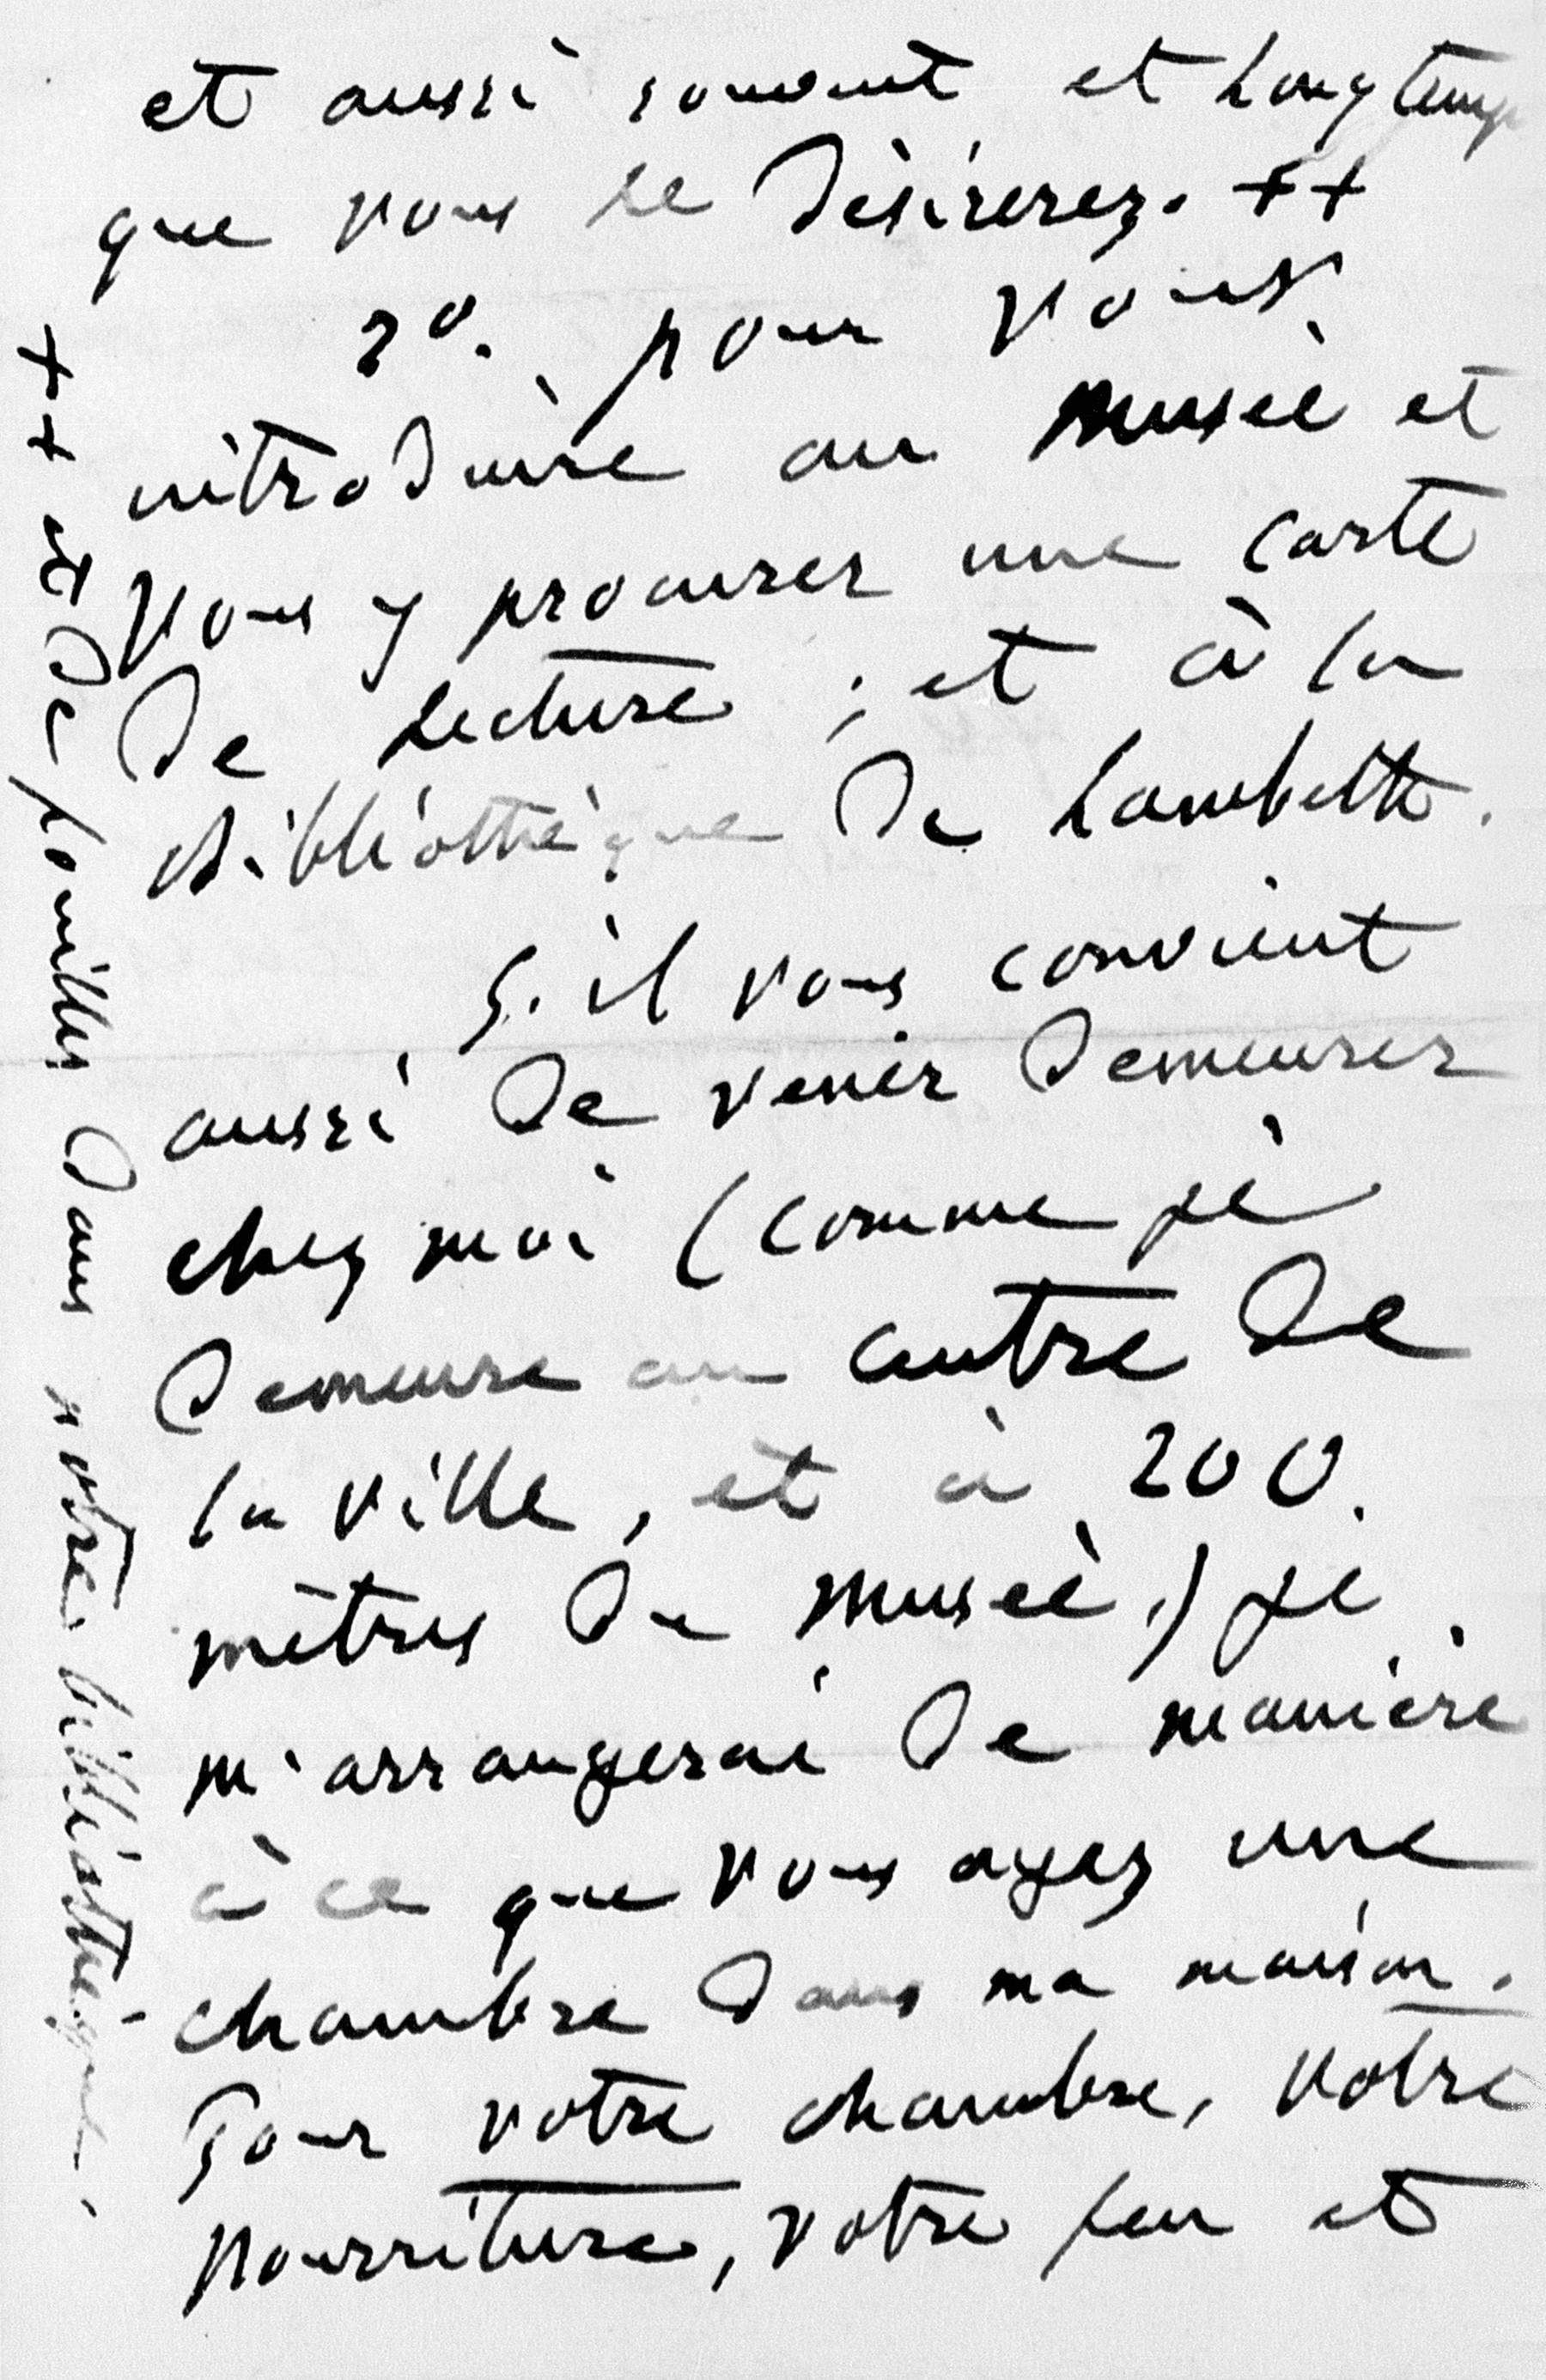 et aussi souvent et longtemps
que vous le désirerez. ++
2º. pour vous
introduire au musée et
vous y procurer une carte
de lecture ; et à la
bibliothèque de Lambeth.
S'il vous convient
aussi de venir demeurer
chez moi (comme je
demeure au centre de
la ville, et à 200.
mètres du musée,) je
m'arrangerai de manière
à ce que vous ayez une
chambre dans ma maison.
Pour votre chambre, votre
nourriture, votre feu et
++ et de fouiller dans notre bibliothèque.